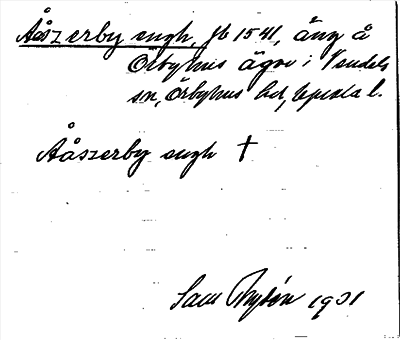 Aåszerby engh, jb 1541, äng å
Örbyhus ägor i Vendels
sn, Örbyhus hd, Upsala l.
Aåszerby engh †
Sam Rydén 1931